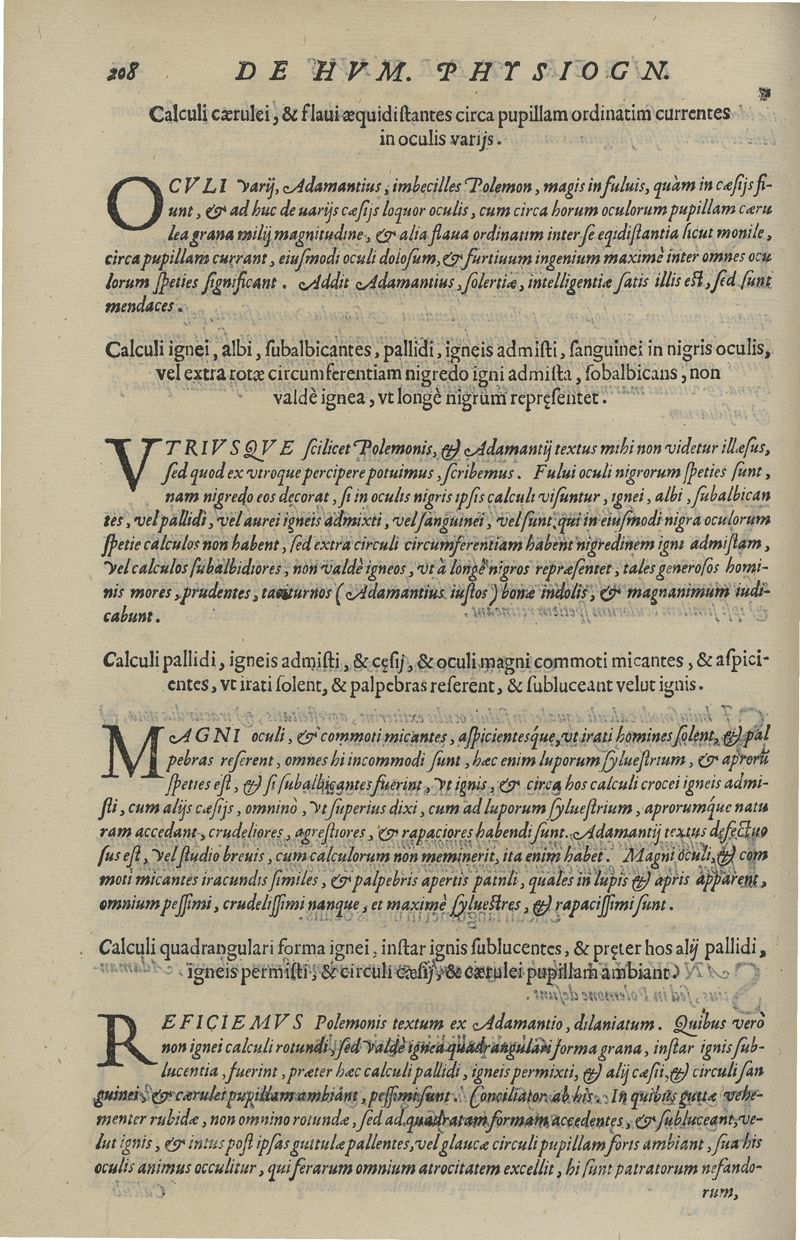 208 DE HVM. PHYSIOGN.
Calculi cærulei, & flaui æquidistantes circa pupillam ordinatim currentes
in oculis varijs.
OCVLI varij, Adamantius, imbecilles Polemon, magis in fuluis, quàm in cæsijs fi-
unt, & ad huc de uarijs cæsijs loquor oculis, cum circa horum oculorum pupillam cæru
lea grana milij magnitudine, & alia flaua ordinatim inter se eqidistantia sicut monile,
circa pupillam currant, eiusmodi oculi dolosum, & furtiuum ingenium maximè inter omnes ocu
lorum speties significant. Addit Adamantius, solertiæ, intelligentiæ satis illis est, sed sunt
mendaces.
Calculi ignei, albi, subalbicantes, pallidi, igneis admisti, sanguinei in nigris oculis,
vel extra rotæ circumferentiam nigredo igni admista, sobalbicans, non
valdè ignea, vt longè nigrum repręsentet.
VTRIVSQVE scilicet Polemonis, & Adamantij textus mihi non videtur illæsus,
sed quod ex vtroque percipere potuimus, scribemus. Fului oculi nigrorum speties sunt,
nam nigredo eos decorat, si in oculis nigris ipsis calculi visuntur, ignei, albi, subalbican
tes, vel pallidi, vel aurei igneis admixti, vel sanguinei, vel sunt, qui in eiusmodi nigra oculorum
spetie calculos non habent, sed extra circuli circumferentiam habent nigredinem igni admistam,
vel calculos subalbidiores, non valdè igneos, vt à longè nigros repræsentet, tales generosos homi-
nis mores, prudentes, taciturnos (Adamantius iustos) bonæ indolis, & magnanimum iudi-
cabunt.
Calculi pallidi, igneis admisti, & cęsij, & oculi magni commoti micantes, & aspici-
entes, vt irati solent, & palpebras referent, & subluceant velut ignis.
MAGNI oculi, & commoti micantes, aspicientesque, vt irati homines solent, & pal
pebras referent, omnes hi incommodi sunt, hæc enim luporum syluestrium, & aprorū
speties est, & si subalbicantes fuerint, vt ignis, & circa hos calculi crocei igneis admi-
sti, cum alijs cæsijs, omninò, vt superius dixi, cum ad luporum syluestrium, aprorumque natu
ram accedant, crudeliores, agrestiores, & rapaciores habendi sunt. Adamantij textus defectuo
sus est, vel studio breuis, cum calculorum non meminerit, ita enim habet. Magni oculi, & com
moti micantes iracundis similes, & palpebris apertis patuli, quales in lupis & apris apparent,
omnium pessimi, crudelissimi nanque, et maximè syluestres, & rapacissimi sunt.
Calculi quadrangulari forma ignei, instar ignis sublucentes, & pręter hos alij pallidi,
igneis permisti, & circuli cæsij, & cærulei pupillam ambiant.
REFICIEMVS Polemonis textum ex Adamantio, dilaniatum. Quibus verò
non ignei calculi rotundi, sed valdè ignea quadrangulari forma grana, instar ignis sub-
lucentia, fuerint, præter hæc calculi pallidi, igneis permixti, & alij cæsii, & circuli san
guinei, & cærulei pupillam ambiant, pessimi sunt. Conciliator ab his. In quibus guttæ vehe-
menter rubidæ, non omnino rotundæ, sed ad quadratam formam accedentes, & subluceant, ve-
lut ignis, & intus post ipsas guttulæ pallentes, vel glaucæ circuli pupillam foris ambiant, sua his
oculis animus occulitur, qui ferarum omnium atrocitatem excellit, hi sunt patratorum nefando-
rum,